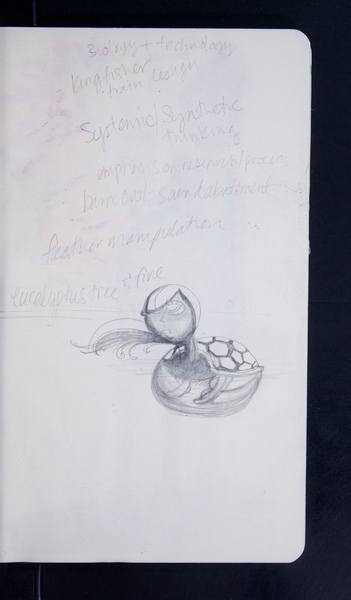 Biology + technology
- Kingfisher
train design
Systemic/Synthetic
thinking
emphasis on research/process
burn out - sound abatement
feather manipulation
eucalyptus tree & fire